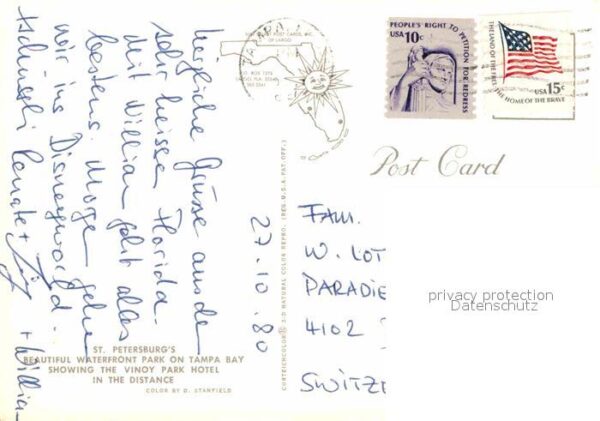 Herzliche Grüsse aus dem
sehr heissen Florida.
Mit William geht alles
bestens. Morge gehe
wir ins Disneyworld.
tschüssli Renate +
+ William
27.10.80
ST. PETERSBURG'S
BEAUTIFUL WATERFRONT PARK ON TAMPA BAY
SHOWING THE VINOY PARK HOTEL
IN THE DISTANCE
COLOR BY D. STANFIELD
CURTEICHCOLOR® 3-D NATURAL COLOR REPRO. (REG. U.S.A. PAT. OFF.)
PEOPLE'S RIGHT TO PETITION FOR REDRESS
USA 10c
THE LAND OF THE FREE
THE HOME OF THE BRAVE
USA 15c
Post Card
FAM.
W. LOT
PARADIE
4102
SWITZE
privacy protection
Datenschutz